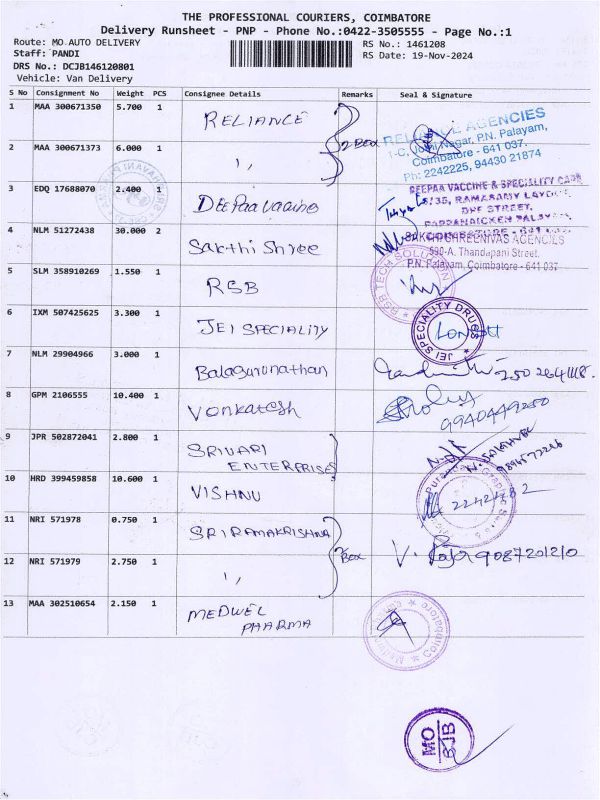 THE PROFESSIONAL COURIERS, COIMBATORE
Delivery Runsheet - PNP - Phone No.:0422-3505555 - Page No.:1
Route: MO AUTO DELIVERY
RS No.: 1461208
Staff: PANDI
RS Date: 19-Nov-2024
DRS No.: DCJB146120801
Vehicle: Van Delivery
S No Consignment No Weight PCS Consignee Details Remarks Seal & Signature
1 MAA 300671350 5.700 1 RELIANCE
2 Box
RELIANCE AGENCIES
Nagar, P.N. Palayam,
Coimbatore - 641 037.
Ph: 2242225, 94430 21874
2 MAA 300671373 6.000 1 "
3 EDQ 17688070 2.400 1 DEEPaa vaccine
DEEPAA VACCINE & SPECIALITY CARE
RAMASAMY LAYOUT,
STREET,
PAPPANAICKEN PALAYAM,
4 NLM 51272438 30.000 2 Sakthi Shree
SAKTHI SHREENIVAS AGENCIES
590-A, Thandapani Street,
P.N. Palayam, Coimbatore - 641 037
5 SLM 358910269 1.550 1 RSB
TECH SOLUTION
6 IXM 507425625 3.300 1 JEI SPECIALITY
JEI SPECIALITY DRUGS
7 NLM 29904966 3.000 1 Balagurunathan
8 GPM 2106555 10.400 1 Venkatesh
9940449250
9 JPR 502872041 2.800 1 SRIVARI
ENTERPRISES
10 HRD 399459858 10.600 1 VISHNU
11 NRI 571978 0.750 1 SRI RAMAKRISHNA
2 Box
V. Raja 9087201210
12 NRI 571979 2.750 1 "
13 MAA 302510654 2.150 1 MEDWEL
PHARMA
MO
BJB